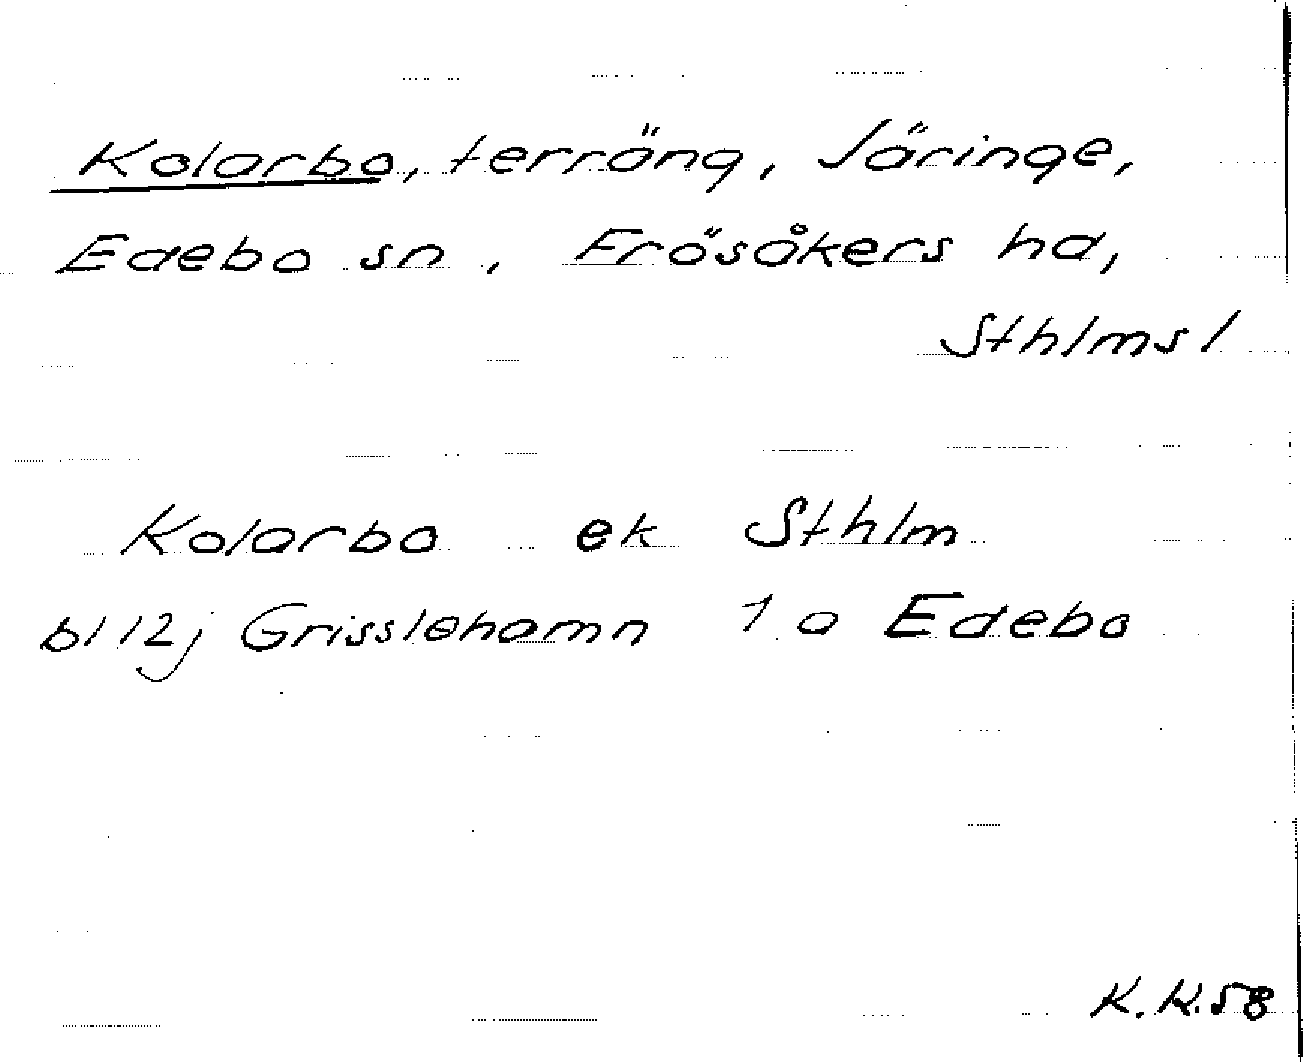 Kolarbo, terräng, Järinge,
Edebo sn, Frösåkers hd,
Sthlms l
Kolarbo ek Sthlm
bl 12j Grisslehamn 1 a Edebo
K. K. 58